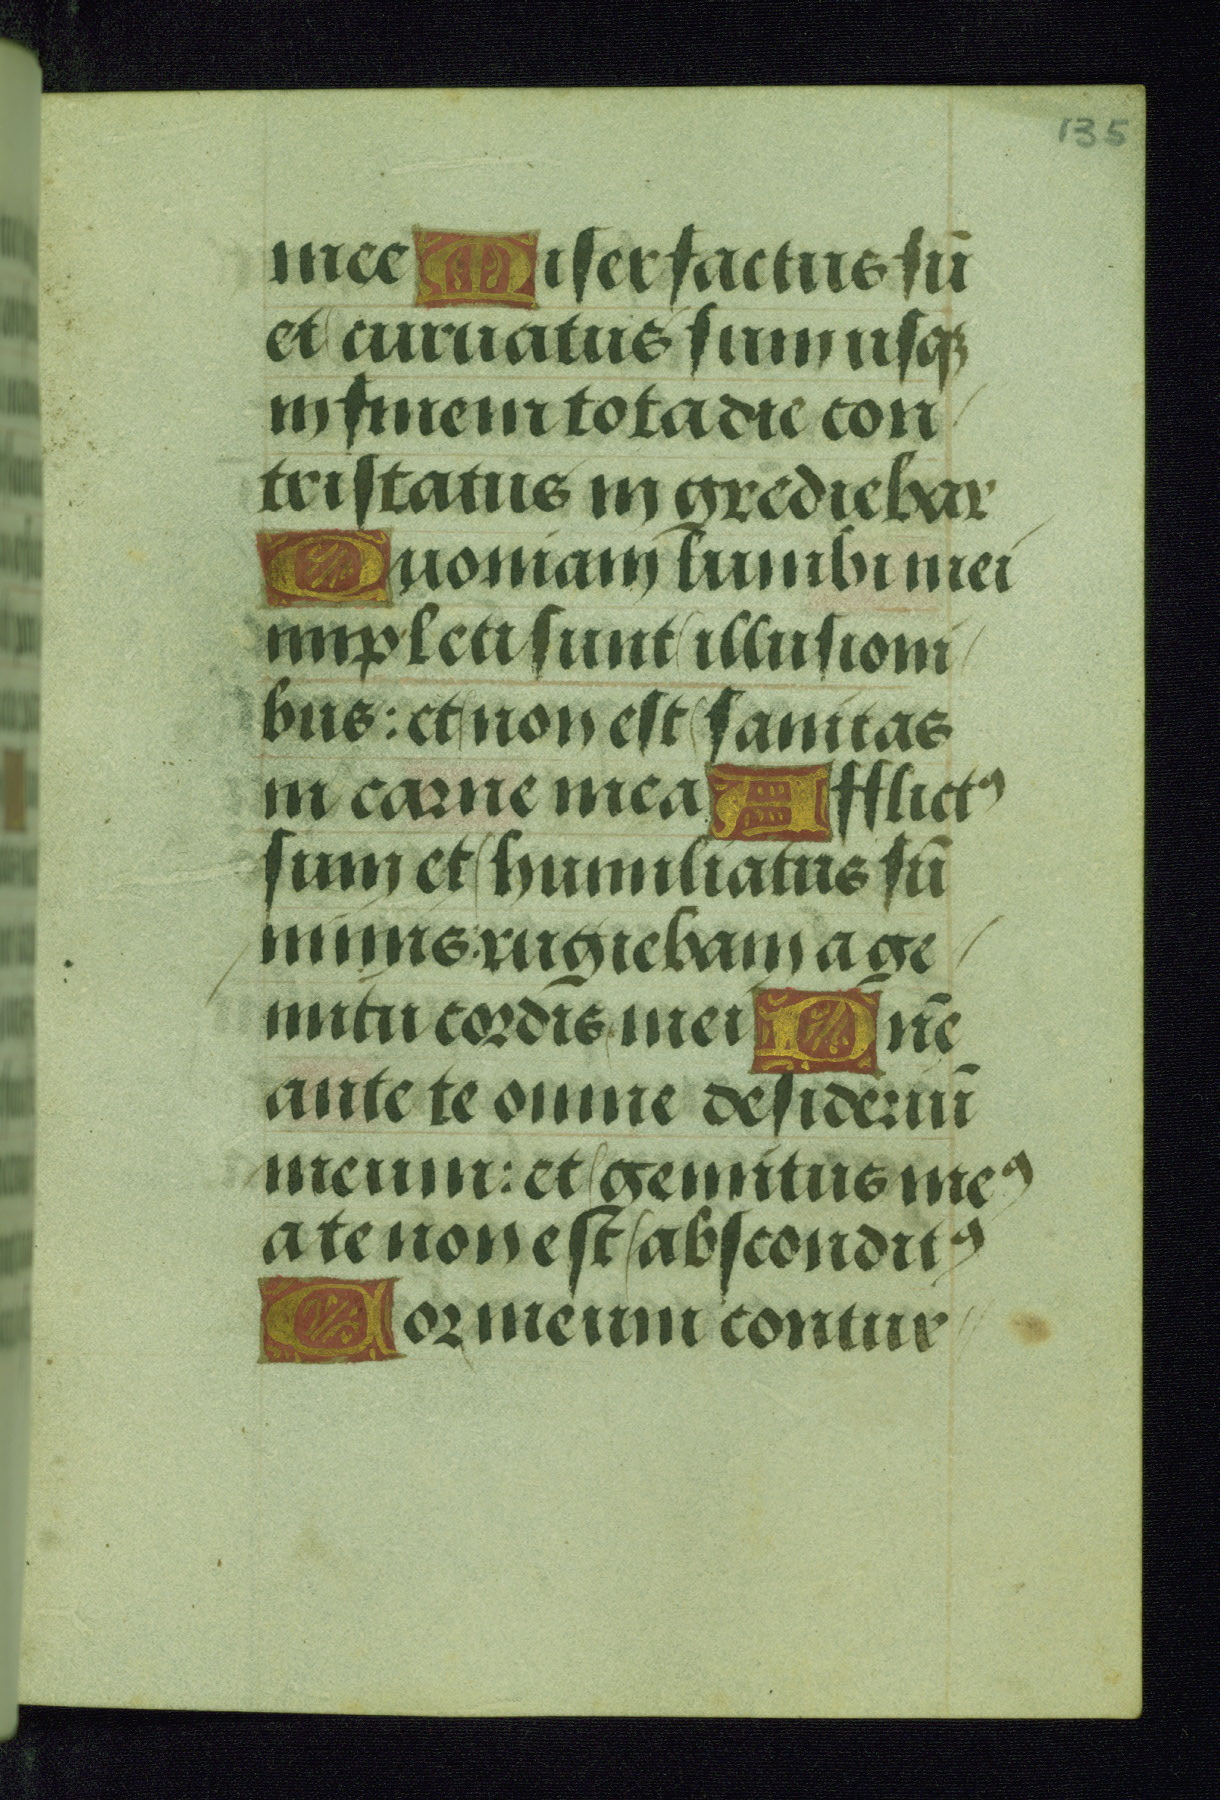 135
mee Miser factus sū
et curuatus sum usqꝫ
in finem tota die con
tristatus in grediebar
Quoniam lumbi mei
impleti sunt illusioni
bus: et non est sanitas
in carne mea Afflictꝰ
sum et humiliatus sū
nimis: rugiebam a ge
mitu cordis mei Dñe
ante te omne desideriū
meum: et gemitus meꝰ
a te non est absconditꝰ
Cor meum contur